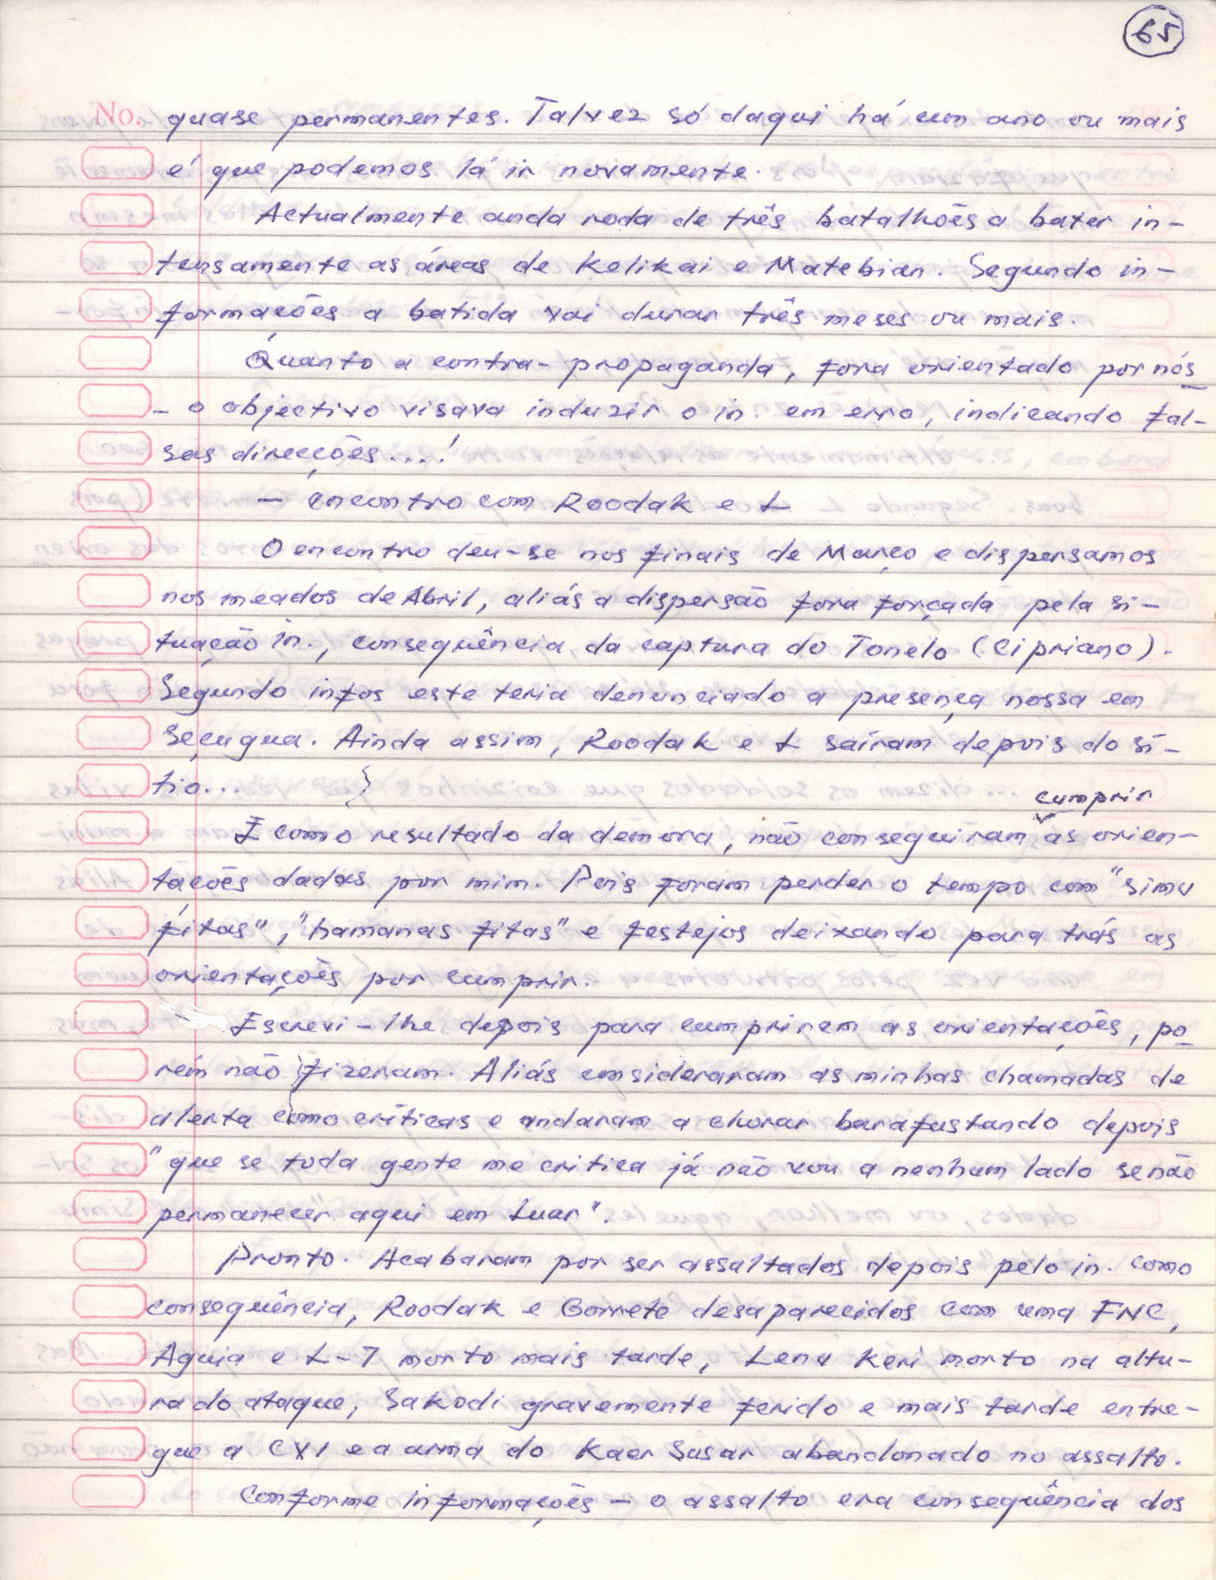 65
No. quase permanentes. Talvez só daqui há um ano ou mais
é que podemos lá ir novamente.
Actualmente anda roda de três batalhões a bater in-
tensamente as áreas de Kelikai e Matebian. Segundo in-
formações a batida vai durar três meses ou mais.
Quanto a contra-propaganda, fora orientado por nós
- o objectivo visava induzir o in. em erro, indicando fal-
sas direcções....!
- Encontro com Roodak e L
O encontro deu-se nos finais de Março e dispersamos
nos meados de Abril, aliás a dispersão fora forçada pela si-
tuação in., consequência da captura do Tonelo (Cipriano).
Segundo infos este teria denunciado a presença nossa em
Seçugua. Ainda assim, Roodak e L saíram depois do sí-
tio...
cumprir
E como resultado da demora, não conseguiram as orien-
tações dadas por mim. Pois foram perder o tempo com "simu
fitas", "hamanas fitas" e festejos deixando para trás as
orientações por cumprir.
Escrevi-lhe depois para cumprirem as orientações, po
rém não fizeram. Aliás consideraram as minhas chamadas de
alerta como críticas e andaram a chorar barafustando depois
"que se toda gente me critica já não vou a nenhum lado senão
permanecer aqui em Luar".
Pronto. Acabaram por ser assaltados depois pelo in. como
consequência, Roodak e Gorrete desaparecidos com uma FNC,
Aguia e L-7 morto mais tarde, Lenu Keri morto na altu-
ra do ataque, Sakodi gravemente ferido e mais tarde entre-
gue a CVI e a arma do Kaer Susar abandonado no assalto.
Conforme informações - o assalto era consequência dos